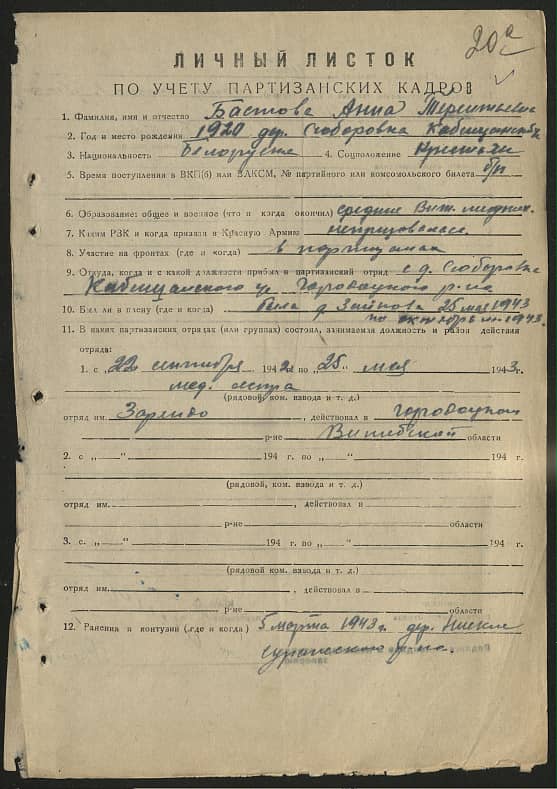 ЛИЧНЫЙ ЛИСТОК
ПО УЧЕТУ ПАРТИЗАНСКИХ КАДРОВ
1. Фамилия, имя и отчество Бастова Анна Терентьевна
2. Год и место рождения 1920 дер. Слоборовка
3. Национальность Белоруска 4. Соцположение Крестьян
5. Время поступления в ВКП(б) или ВЛКСМ, № партийного или комсомольского билета б/п
6. Образование: общее и военное (что и когда окончил) среднее Вит.
7. Каким РВК и когда призван в Красную Армию непризывалась
8. Участие на фронтах (где и когда) в партизанах
9. Откуда, когда и с какой должности прибыл в партизанский отряд с д. Слоборовка
Городоцкого р-на
10. Был ли в плену (где и когда) была д. 25 мая 1943
по октябрь м. 1943.
11. В каких партизанских отрядах (или группах) состоял, занимаемая должность и район действия
отряда:
1. с „22“ сентября 1942 по „25“ мая 1943 г.
мед. сестра
(рядовой, ком. взвода и т. д.)
отряд им. , действовал в Городоцком
р-не Витебской области
2. с „—“ 194 г. по „—“ 194 г.
(рядовой, ком. взвода и т. д.)
отряд им. , действовал в
р-не области
3. с. „—“ 194 г. по „—“ 194 г.
(рядовой, ком. взвода и т. д.)
отряд им. , действовал в
р-не области
12. Ранения и контузии (где и когда) 5 марта 1943 г. дер.
Суражского р-на